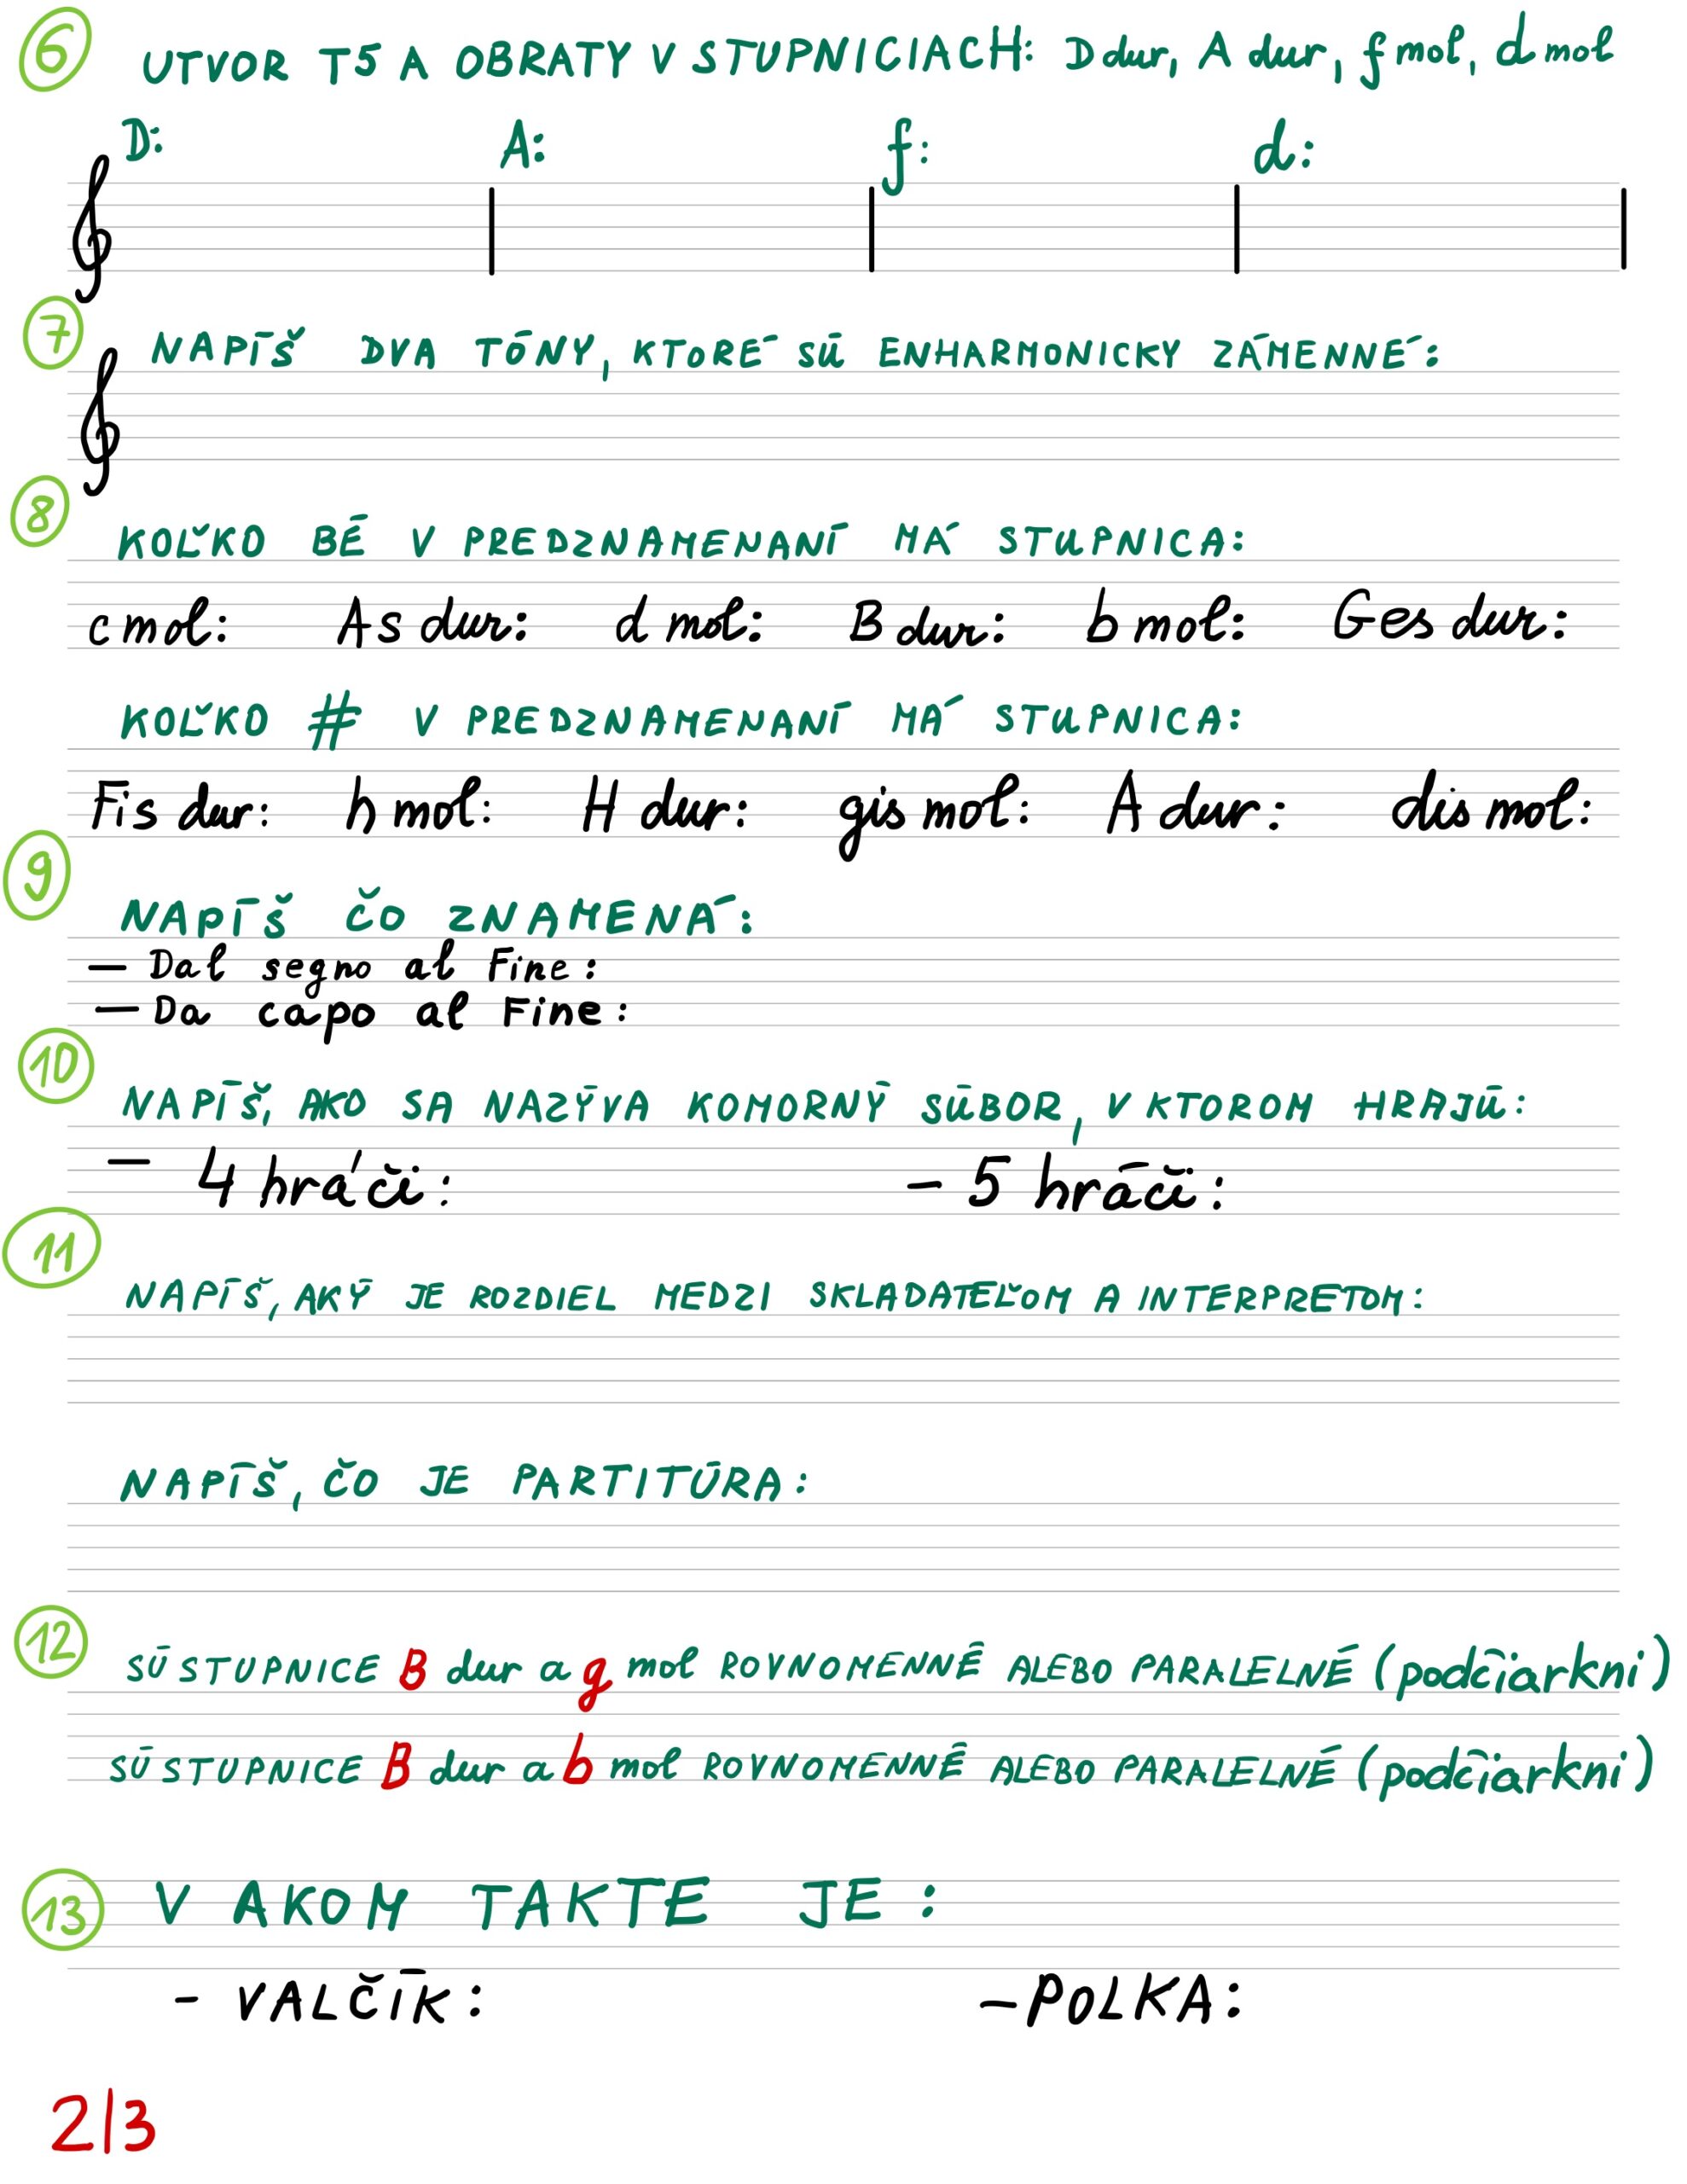 6 UTVOR T5 A OBRATY V STUPNICIACH: D dur, A dur, f mol, d mol
D: A: f: d:
7 NAPÍŠ DVA TÓNY, KTORÉ SÚ ENHARMONICKY ZÁMENNÉ:
8 KOĽKO BÉ V PREDZNAMENANÍ MÁ STUPNICA:
c mol: As dur: d mol: B dur: b mol: Ges dur:
KOĽKO # V PREDZNAMENANÍ MÁ STUPNICA:
Fis dur: h mol: H dur: gis mol: A dur: dis mol:
9 NAPÍŠ ČO ZNAMENÁ:
– Dal segno al Fine:
– Da capo al Fine:
10 NAPÍŠ, AKO SA NAZÝVA KOMORNÝ SÚBOR, V KTOROM HRAJÚ:
– 4 hráči: – 5 hráči:
11 NAPÍŠ, AKÝ JE ROZDIEL MEDZI SKLADATEĽOM A INTERPRETOM:
NAPÍŠ, ČO JE PARTITÚRA:
12 SÚ STUPNICE B dur a g mol ROVNOMENNÉ ALEBO PARALELNÉ (podčiarkni)
SÚ STUPNICE B dur a b mol ROVNOMENNÉ ALEBO PARALELNÉ (podčiarkni)
13 V AKOM TAKTE JE:
- VALČÍK: - POLKA:
2|3